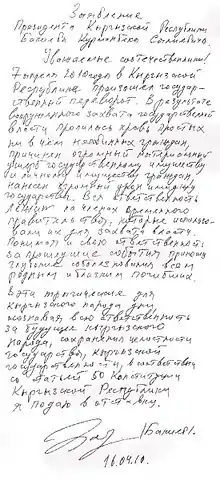 Заявление
Президента Кыргызской Республики
Бакиева Курманбека Салиевича.
Уважаемые соотечественники!
7 апреля 2010 года в Кыргызской
Республике произошел государ-
ственный переворот. В результате
вооруженного захвата государственной
власти пролилась кровь простых
ни в чем неповинных граждан,
причинен огромный материальный
ущерб государственному имуществу
и личному имуществу граждан,
нанесен огромный урон имиджу
государства. Вся ответственность
лежит на членах временного
правительства, которые использо-
вали их для захвата власти.
Понимая и свою ответственность
за прошедшие события приношу
глубокие соболезнования всем
родным и близким погибших.
В эти трагические для
Кыргызского народа дни
осознавая всю ответственность
за будущее кыргызского
народа, сохранения целостности
государства, кыргызской
государственности, в соответствии
со статьей 50 Конституции
Кыргызской Республики
я подаю в отставку.
/Бакиев/.
16.04.10.